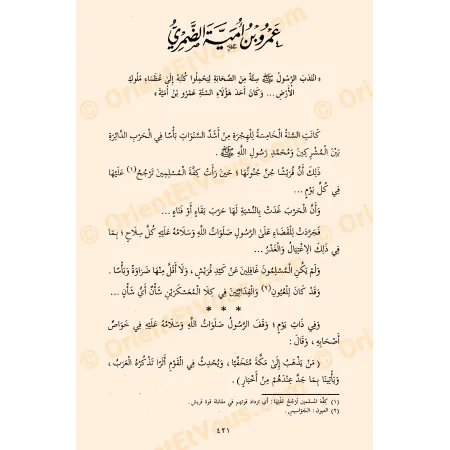 عَمْرُو بْنُ أُمَيَّةَ الضَّمْرِيُّ
« انْتَدَبَ الرَّسُولُ ﷺ سِتَّةً مِنَ الصَّحَابَةِ لِيَحْمِلُوا كُتُبَهُ إِلَى عُظَمَاءِ مُلُوكِ
الأَرْضِ ... وَكَانَ أَحَدَ هَؤُلَاءِ السِّتَّةِ عَمْرُو بْنُ أُمَيَّةَ »
كَانَتِ السَّنَةُ الْخَامِسَةُ لِلْهِجْرَةِ مِنْ أَشَدِّ السَّنَوَاتِ بَأْسًا فِي الْحَرْبِ الدَّائِرَةِ
بَيْنَ الْمُشْرِكِينَ وَمُحَمَّدٍ رَسُولِ اللَّهِ ﷺ .
ذَلِكَ أَنَّ قُرَيْشًا جُنَّ جُنُونُهَا ؛ حِينَ رَأَتْ كِفَّةَ الْمُسْلِمِينَ تَرْجُحُ (١) عَلَيْهَا
فِي كُلِّ يَوْمٍ ...
وَأَنَّ الْحَرْبَ غَدَتْ بِالنِّسْبَةِ لَهَا حَرْبَ بَقَاءٍ أَوْ فَنَاءٍ ...
فَجَرَّدَتْ لِلْقَضَاءِ عَلَى الرَّسُولِ صَلَوَاتُ اللَّهِ وَسَلَامُهُ عَلَيْهِ كُلَّ سِلَاحٍ ؛ بِمَا
فِي ذَلِكَ الِاغْتِيَالُ وَالْغَدْرُ ...
وَلَمْ يَكُنِ الْمُسْلِمُونَ غَافِلِينَ عَنْ كَيْدِ قُرَيْشٍ ، وَلَا أَقَلَّ مِنْهَا ضَرَاوَةً وَبَأْسًا .
وَقَدْ كَانَ لِلْعُيُونِ (٢) وَالْفِدَائِيِّينَ فِي كِلَا الْمُعَسْكَرَيْنِ شَأْنٌ أَيُّ شَأْنٍ ...
* * *
وَفِي ذَاتِ يَوْمٍ ؛ وَقَفَ الرَّسُولُ صَلَوَاتُ اللَّهِ وَسَلَامُهُ عَلَيْهِ فِي خَوَاصِّ
أَصْحَابِهِ ، وَقَالَ :
( مَنْ يَذْهَبُ إِلَى مَكَّةَ مُتَخَفِّيًا ، وَيُحْدِثُ فِي الْقَوْمِ أَثَرًا تَذْكُرُهُ الْعَرَبُ ،
وَيَأْتِينَا بِمَا جَدَّ عِنْدَهُمْ مِنْ أَخْبَارٍ ) .
(١) كِفَّةَ المسلمين تَرْجُحُ عَلَيْهَا : أي تزداد قوتهم في مقابلة قوة قريش .
(٢) العيون : الجواسيس .
٤٢١
© OrientEtVous.com